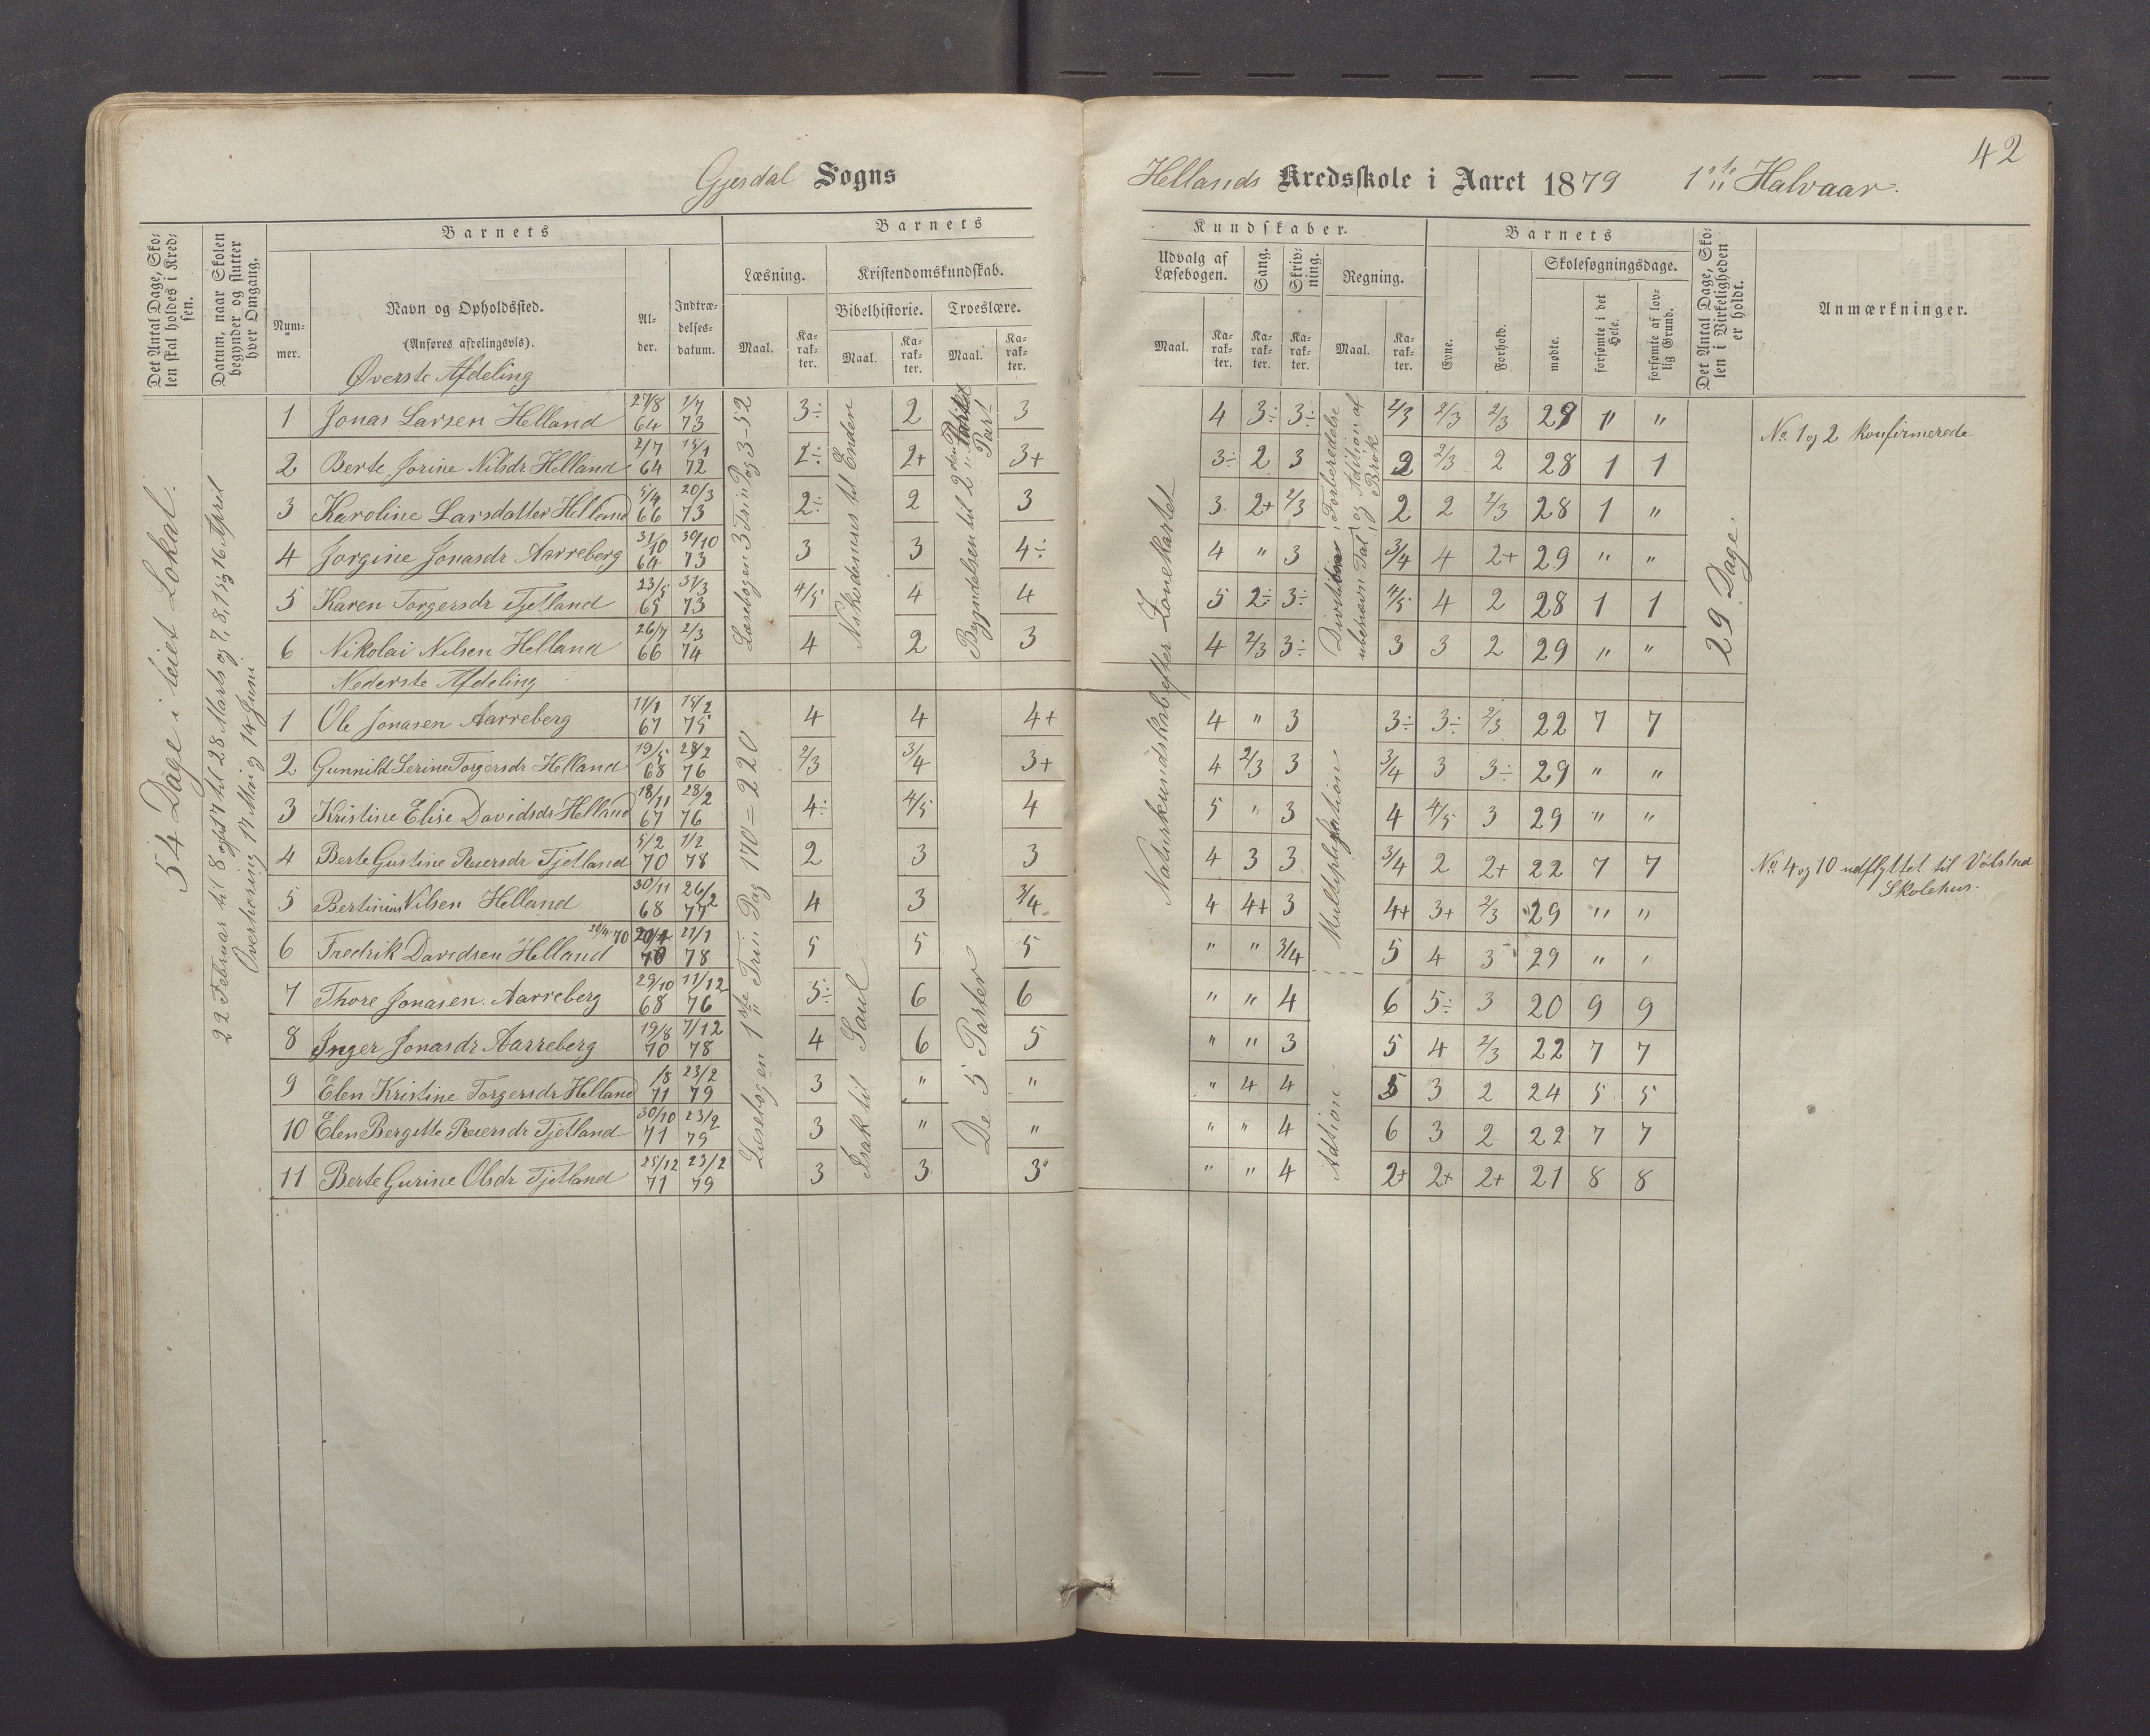 42
Gjesdal Sogns
Hellands Kredsskole i Aaret 1879 1ste Halvaar.
Det Antal Dage, Skolen skal holdes i Kredsen.
Datum, naar Skolen begynder og slutter hver Omgang.
Barnets
Nummer.
Navn og Opholdssted.
(Anføres afdelingsvis).
Alder.
Indtrædelsesdatum.
Barnets
Læsning.
Maal.
Karakter.
Kristendomskundskab.
Bibelhistorie.
Maal.
Karakter.
Troeslære.
Maal.
Karakter.
Kundskaber.
Udvalg af Læsebogen.
Maal.
Karakter.
Sang.
Karakter.
Skrivning.
Karakter.
Regning.
Maal.
Karakter.
Barnets
Evne.
Forhold.
Skolesøgningsdage.
mødte.
forsømte i det Hele.
forsømte af lovlig Grund.
Det Antal Dage, Skolen i Virkeligheden er holdt.
Anmærkninger.
54 Dage i leiet Lokal.
22 Februar til 8 og 17 til 28 Marts og 7, 8, 15 16 April
Overhøring 17 Mai og 14 Juni
Øverste Afdeling
1 Jonas Larsen Helland 27/8 64 1/7 73 3÷ 2 3 4 3÷ 3÷ 2/3 2/3 2/3 29 " "
2 Berte Jorine Nilsdr Helland 2/7 64 15/1 72 2÷ 2+ 3+ 3÷ 2 3 2 2/3 2 28 1 1
3 Karoline Larsdatter Helland 5/4 66 20/3 73 2÷ 2 3 3 2+ 2/3 2 2 2/3 28 1 "
4 Jorgine Jonasdr Aarreberg 31/10 64 30/10 73 3 3 4÷ 4 " 3 3/4 4 2+ 29 " "
5 Karen Torgersdr Tjetland 23/5 65 31/3 73 4/5 4 4 5 2÷ 3÷ 4/5 4 2 28 1 1
6 Nikolai Nilsen Helland 26/7 66 2/3 74 4 2 3 4 2/3 3÷ 3 3 2 29 " "
Læsebogen 3 Trin Pag 3-52
Nikodemus til Enden
Begyndelsen til 2den Part
Naturkundskab efter Zonekartet
ubenævn Tal og Adition af Brøk
29 Dage.
No. 1 og 2 konfirmerede
Nederste Afdeling
1 Ole Jonasen Aarreberg 11/1 67 15/2 75 4 4 4+ 4 " 3 3÷ 3÷ 2/3 22 7 7
2 Gunnild Serine Torgersdr Helland 19/5 68 28/2 76 2/3 3/4 3+ 4 2/3 3 3/4 3 3÷ 29 " "
3 Kristine Elise Davidsdr Helland 18/11 67 28/2 76 4÷ 4/5 4 5 " 3 4 4/5 3 29 " "
4 Berte Gustine Reiersdr Tjetland 5/2 70 1/2 78 2 3 3 4 3 3 3/4 2 2+ 22 7 7
5 Bertinius Nilsen Helland 30/11 68 26/2 77 4 3 3/4 4 4+ 3 4+ 3+ 2/3 29 " "
6 Fredrik Davidsen Helland 20/4 70 21/1 78 5 5 5 " " 3/4 5 4 3 29 " "
7 Thore Jonasen Aarreberg 29/10 68 11/12 76 5÷ 6 6 " " 4 6 5÷ 3 20 9 9
8 Inger Jonasdr Aarreberg 19/8 70 7/12 78 4 6 5 " " 3 5 4 2/3 22 7 7
9 Elen Kristine Torgersdr Helland /8 71 23/2 79 3 " " " 4 4 5 3 2 24 5 5
10 Elen Bergitte Reiersdr Tjetland 30/10 71 23/2 79 3 " " " " 4 6 3 2 22 7 7
11 Berte Gurine Olsdr Tjetland 25/12 71 23/2 79 3 3 3 " " 4 2+ 2+ 2+ 21 8 8
Læsebogen 1ste Trin Pag 170=220
Isak til Saul
De 5 Parter
Multiplikation
Adition
No. 4 og 10 udflyttet til Vølstad
Skolehus.